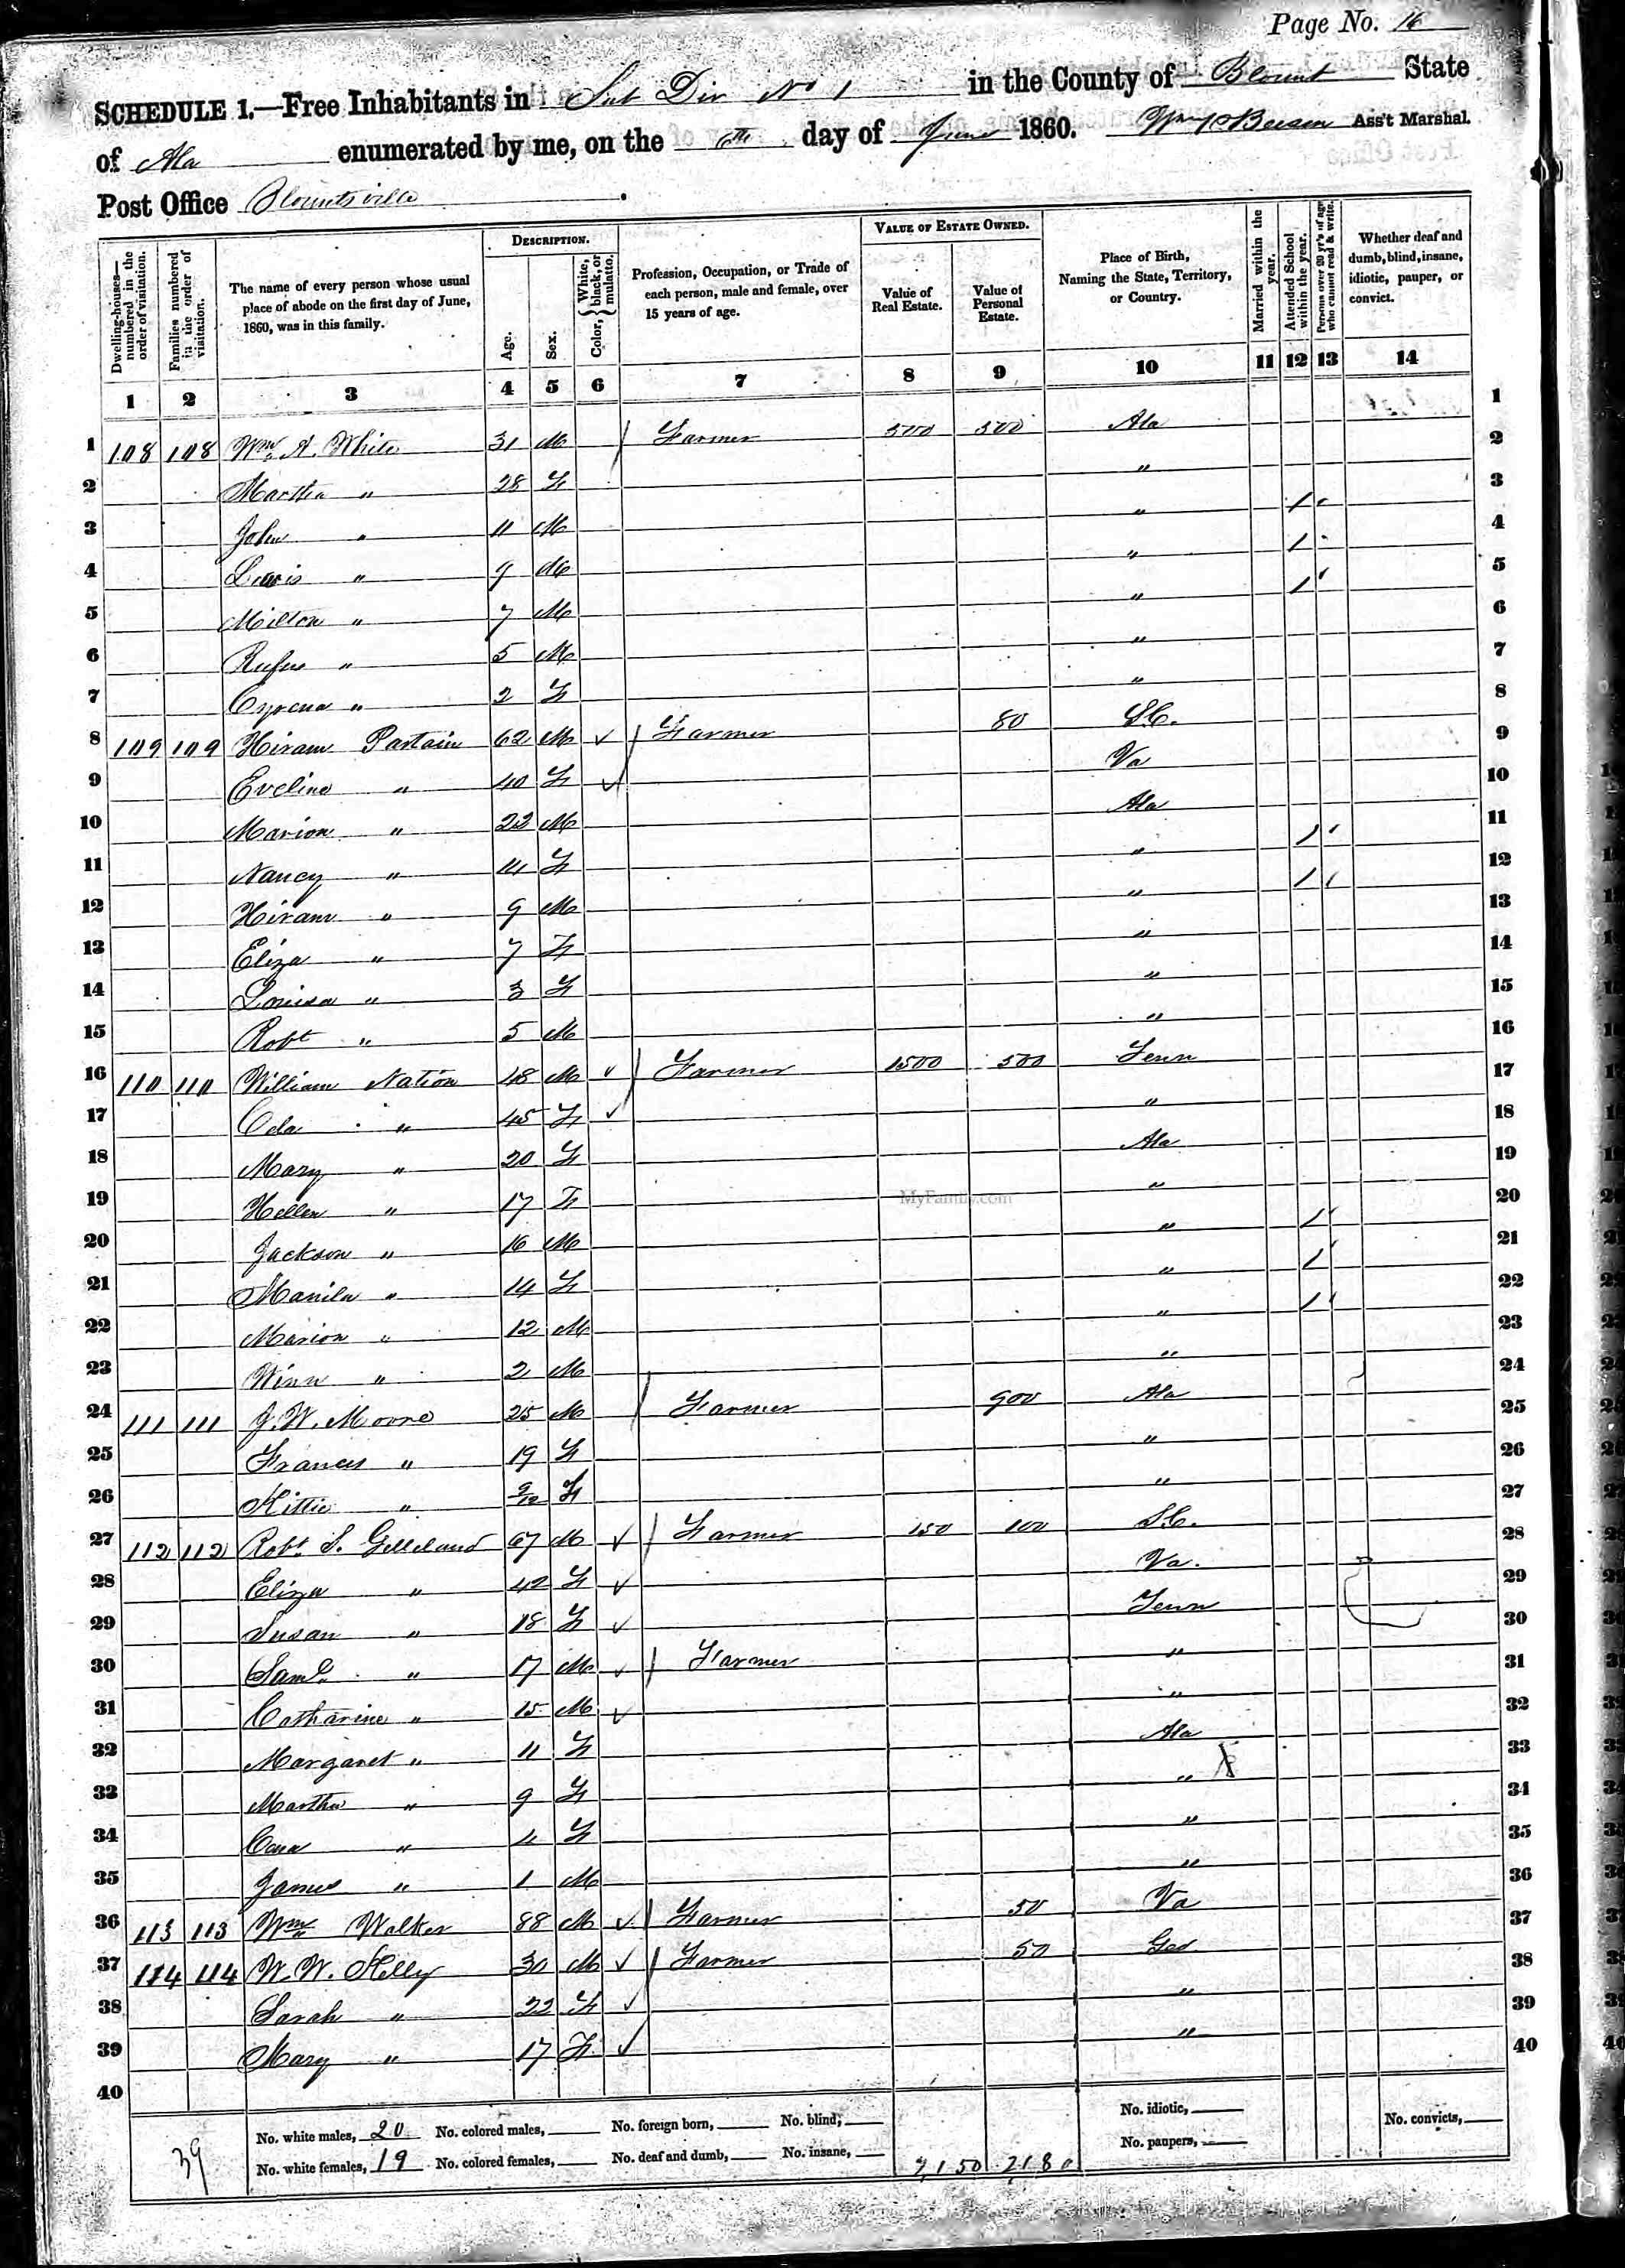 Page No. 16
SCHEDULE 1.—Free Inhabitants in Sub Div No 1 in the County of Blount State
of Ala enumerated by me, on the 6th day of June 1860. Ass't Marshal.
Post Office Blountsville
Dwelling-houses—numbered in the order of visitation. Families numbered in the order of visitation. The name of every person whose usual place of abode on the first day of June, 1860, was in this family. DESCRIPTION. Age. Sex. Color, { White, black, or mulatto. Profession, Occupation, or Trade of each person, male and female, over 15 years of age. VALUE OF ESTATE OWNED. Value of Real Estate. Value of Personal Estate. Place of Birth, Naming the State, Territory, or Country. Married within the year. Attended School within the year. Persons over 20 yr's of age who cannot read & write. Whether deaf and dumb, blind, insane, idiotic, pauper, or convict.
1 2 3 4 5 6 7 8 9 10 11 12 13 14
1 108 108 Wm A. White 31 M Farmer 500 500 Ala 1
2 Martha " 28 F " 2
3 John " 11 M " / 3
4 Lewis " 9 M " / 4
5 Milton " 7 M " / 5
6 Rufus " 5 M " 6
7 Cyrena " 2 F " 7
8 109 109 Hiram Partain 62 M ✓ Farmer 80 S.C. 8
9 Eveline " 40 F ✓ Va 9
10 Marion " 22 M Ala 10
11 Nancy " 14 F " / 11
12 Hiram " 9 M " / 12
13 Eliza " 7 F " 13
14 Louisa " 3 F " 14
15 Robt " 5 M " 15
16 110 110 William Nation 48 M ✓ Farmer 1500 500 Tenn 16
17 Oda " 45 F ✓ " 17
18 Mary " 20 F Ala 18
19 Hellen " 17 F " 19
20 Jackson " 16 M " / 20
21 Manila " 14 F " / 21
22 Marion " 12 M " / 22
23 Winn " 2 M " 23
24 111 111 J. W. Moore 25 M Farmer 900 Ala 24
25 Frances " 19 F " 25
26 Kittie " 2/12 F " 26
27 112 112 Robt S. Gilleland 67 M ✓ Farmer 150 100 S.C. 27
28 Eliza " 42 F ✓ Va. 28
29 Susan " 18 F ✓ Tenn 29
30 Saml " 17 M ✓ Farmer " 30
31 Catharine " 15 M ✓ " 31
32 Margaret " 11 F Ala 32
33 Martha " 9 F " 33
34 " 4 F " 34
35 James " 1 M " 35
36 113 113 Wm Walker 88 M ✓ Farmer 50 Va 36
37 114 114 W. W. Kelly 30 M ✓ Farmer 50 Geo 37
38 Sarah " 22 F ✓ " 38
39 Mary " 17 F ✓ " 39
40 40
39 No. white males, 20 No. colored males, No. foreign born, No. blind, No. idiotic, No. convicts,
No. white females, 19 No. colored females, No. deaf and dumb, No. insane, 2150 2180 No. paupers,
MyFamily.com